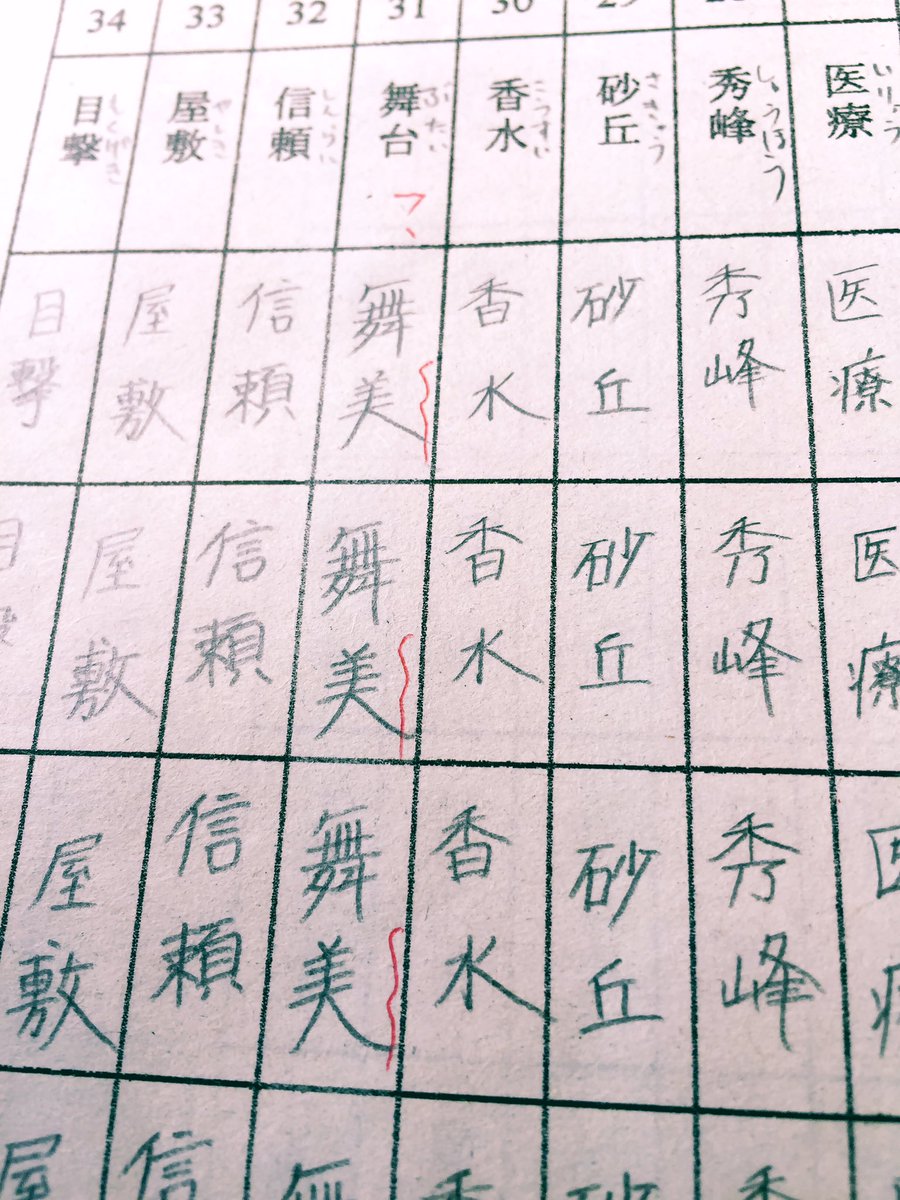 医療
いりょう
医療
医療
秀峰
しゅうほう
秀峰
秀峰
秀峰
29
砂丘
さきゅう
砂丘
砂丘
砂丘
30
香水
こうすい
香水
香水
香水
31
舞台
ぶたい
舞美
舞美
舞美
32
信頼
しんらい
信頼
信頼
信頼
信
33
屋敷
やしき
屋敷
屋敷
屋敷
屋
34
目撃
もくげき
目撃
目